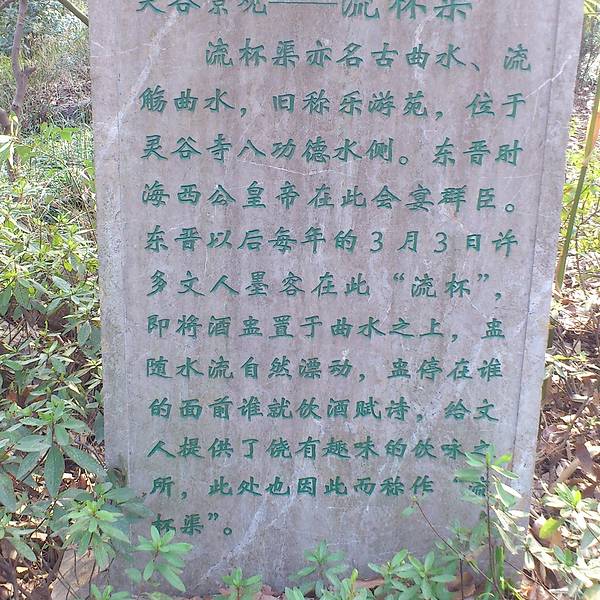 灵谷景观——流杯渠
流杯渠亦名古曲水、流
觞曲水，旧称乐游苑，位于
灵谷寺八功德水侧。东晋时
海西公皇帝在此会宴群臣。
东晋以后每年的3月3日许
多文人墨客在此“流杯”，
即将酒盅置于曲水之上，盅
随水流自然漂动，盅停在谁
的面前谁就饮酒赋诗，给文
人提供了饶有趣味的饮咏之
所，此处也因此而称作“流
杯渠”。